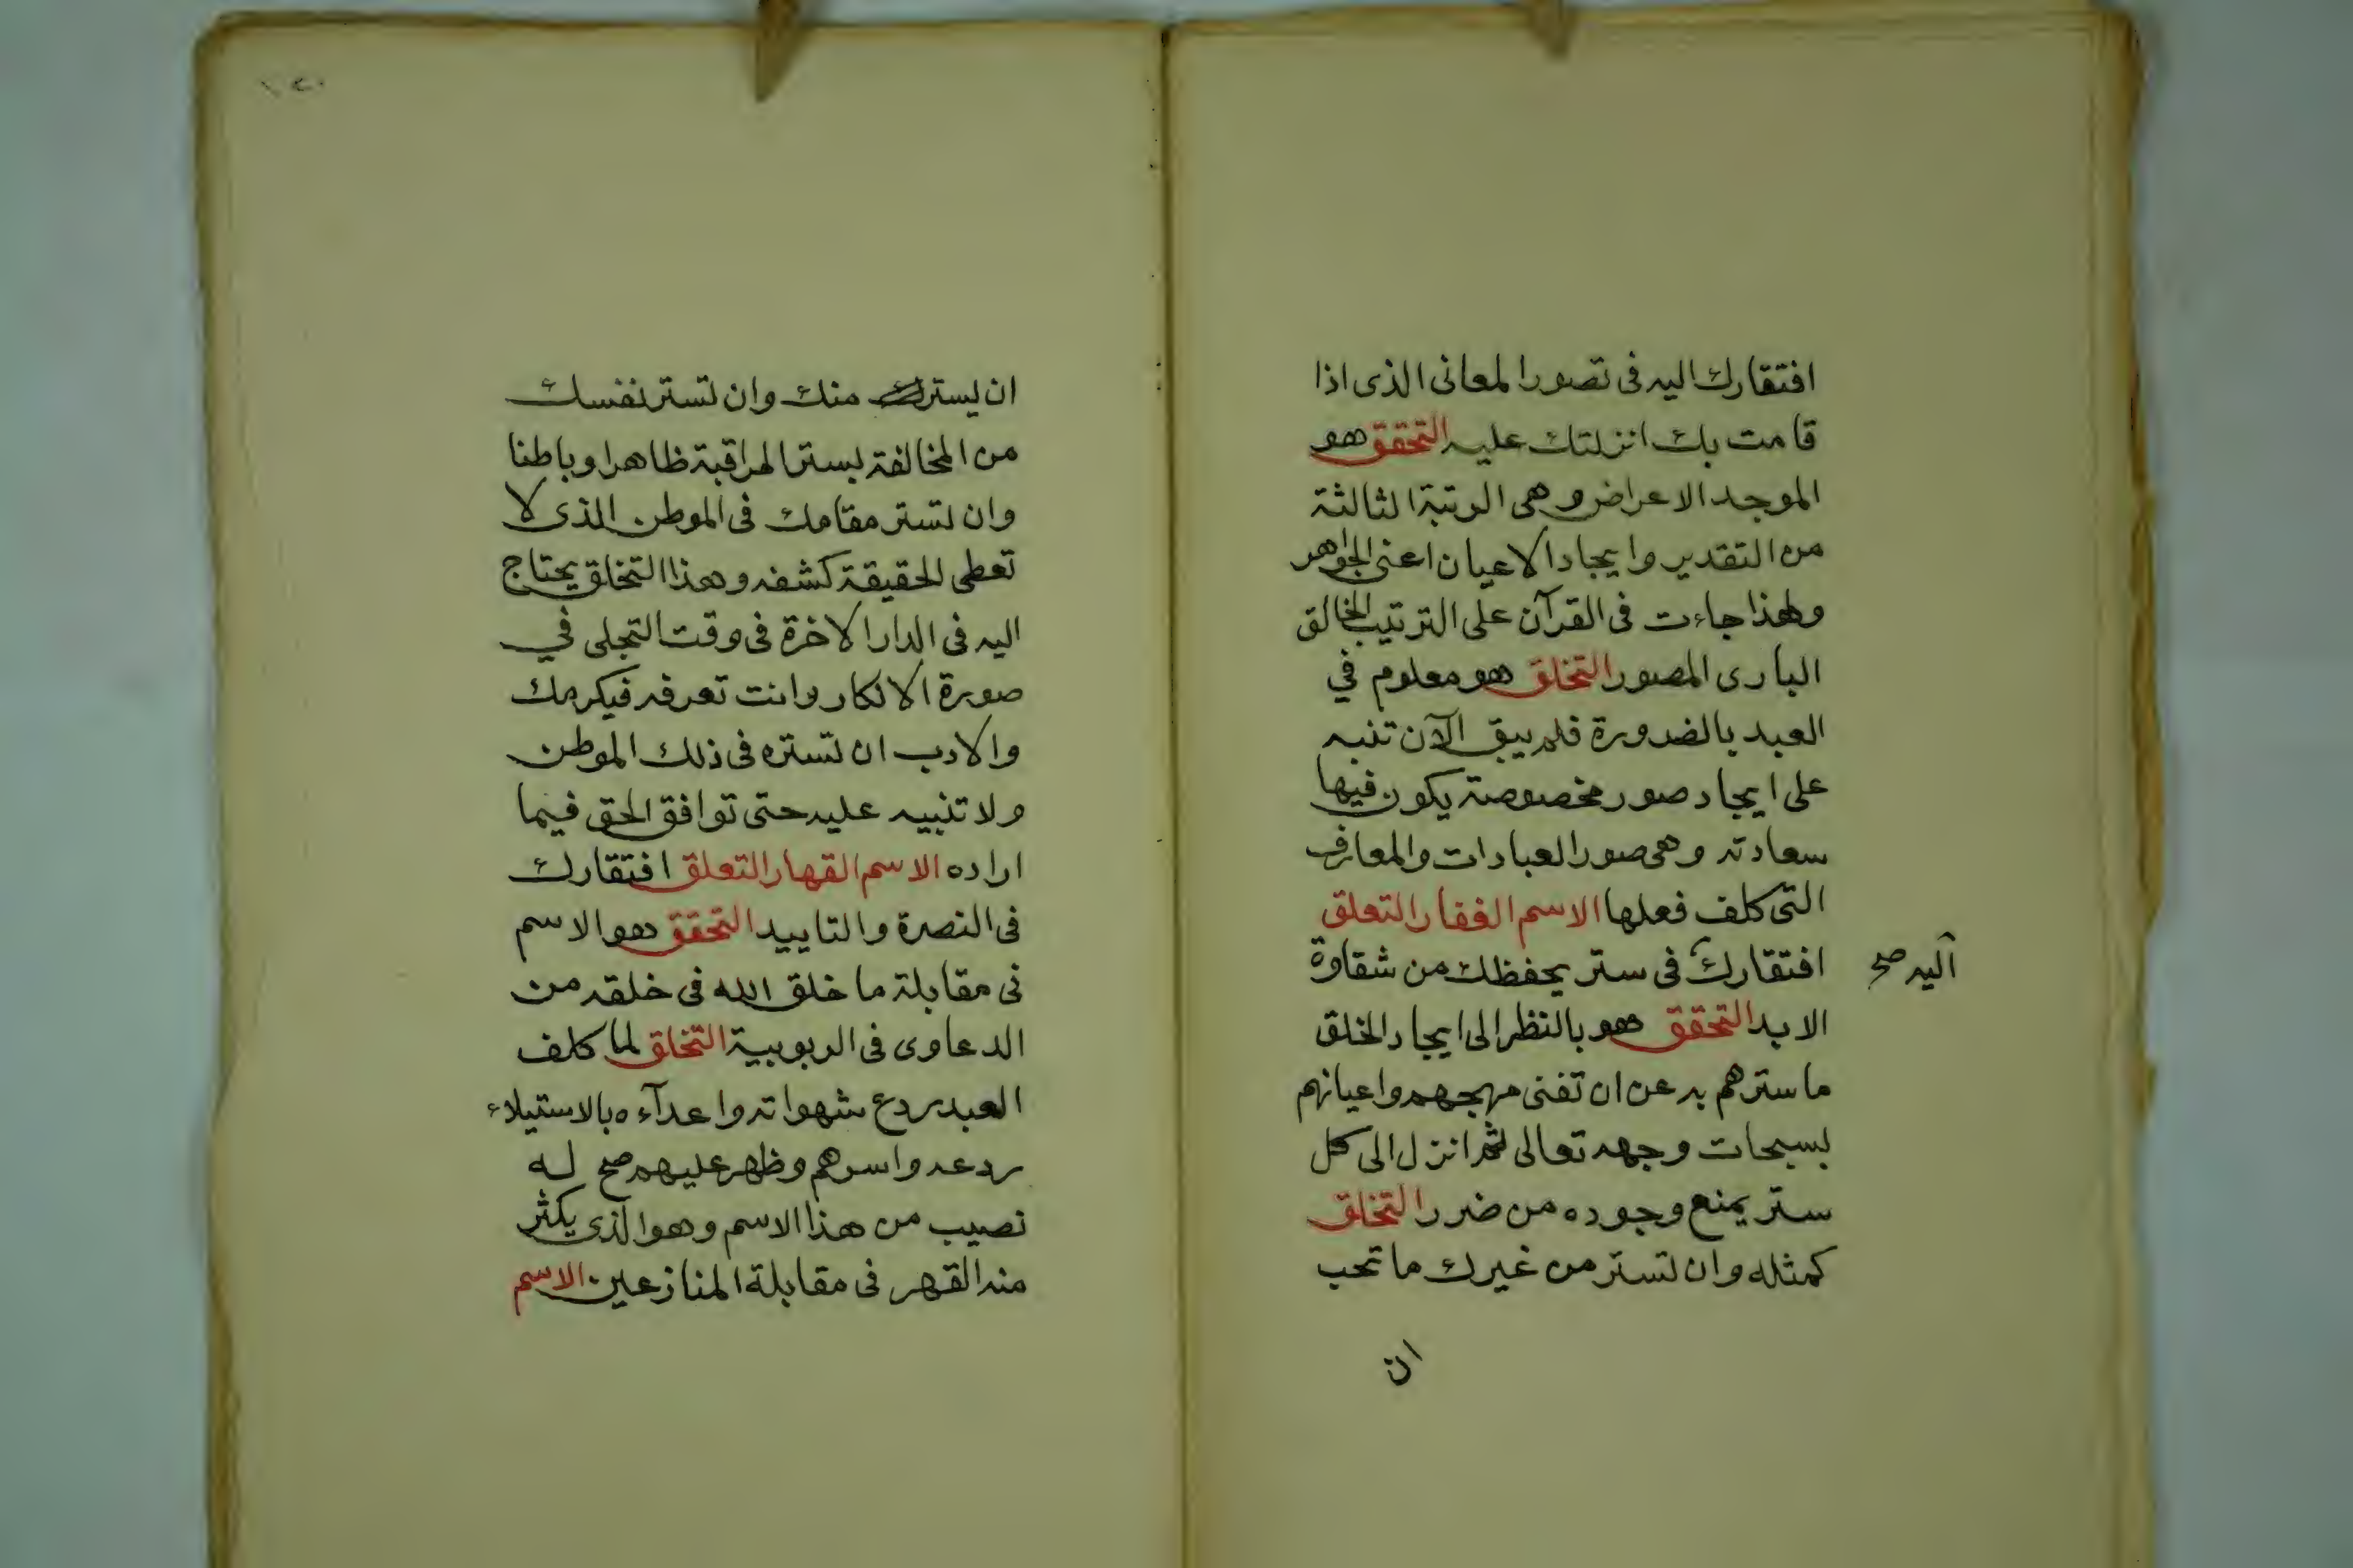 افتقارك اليه فى تصور المعانى الذى اذا
قامت بك انزلتك عليه التحقق هو
الموجد الاعراض وهى الرتبة الثالثة
من التقدير وايجاد الاعيان اعنى الجواهر
ولهذا جاءت فى القرآن على الترتيب الخالق
البارى المصور التخلق هو معلوم في
العبد بالضرورة فلم يبق الآن تنبه
على ايجاد صور مخصوصة يكون فيها
سعادته وهى صور العبادات والمعارف
التى كلف فعلها الاسم الغفار التعلق
افتقارك فى ستر يحفظك من شقاوة
اليه صح
الابد التحقق هو بالنظر الى ايجاد الخلق
ما سترهم به عن ان تفنى مهجهم واعيانهم
بسبحات وجهه تعالى ثم انزل الى كل
ستر يمنع وجوده من ضرر التخلق
كمثله وان تستر من غيرك ما تحب
ان
١٢٠
ان يستر منك وان تستر نفسك
من المخالفة بستر المراقبة ظاهرا وباطنا
وان تستر مقامك فى الموطن الذى لا
تعطى الحقيقة كشفه وهذا التخلق يحتاج
اليه فى الدار الاخرة فى وقت التجلى في
صورة الانكار وانت تعرفه فيكرمك
والادب ان تستره فى ذلك الموطن
ولا تنبيه عليه حتى توافق الحق فيما
اراده الاسم القهار التعلق افتقارك
فى النصرة والتاييد التحقق هو الاسم
فى مقابلة ما خلق الله فى خلقه من
الدعاوى فى الربوبية التخلق لما كلف
العبد ردع شهواته واعدآءه بالاستيلاء
ردعه واسرهم وظهر عليهم صح له
نصيب من هذا الاسم وهو الذى يكثر
منه القهر فى مقابلة المنازعين الاسم